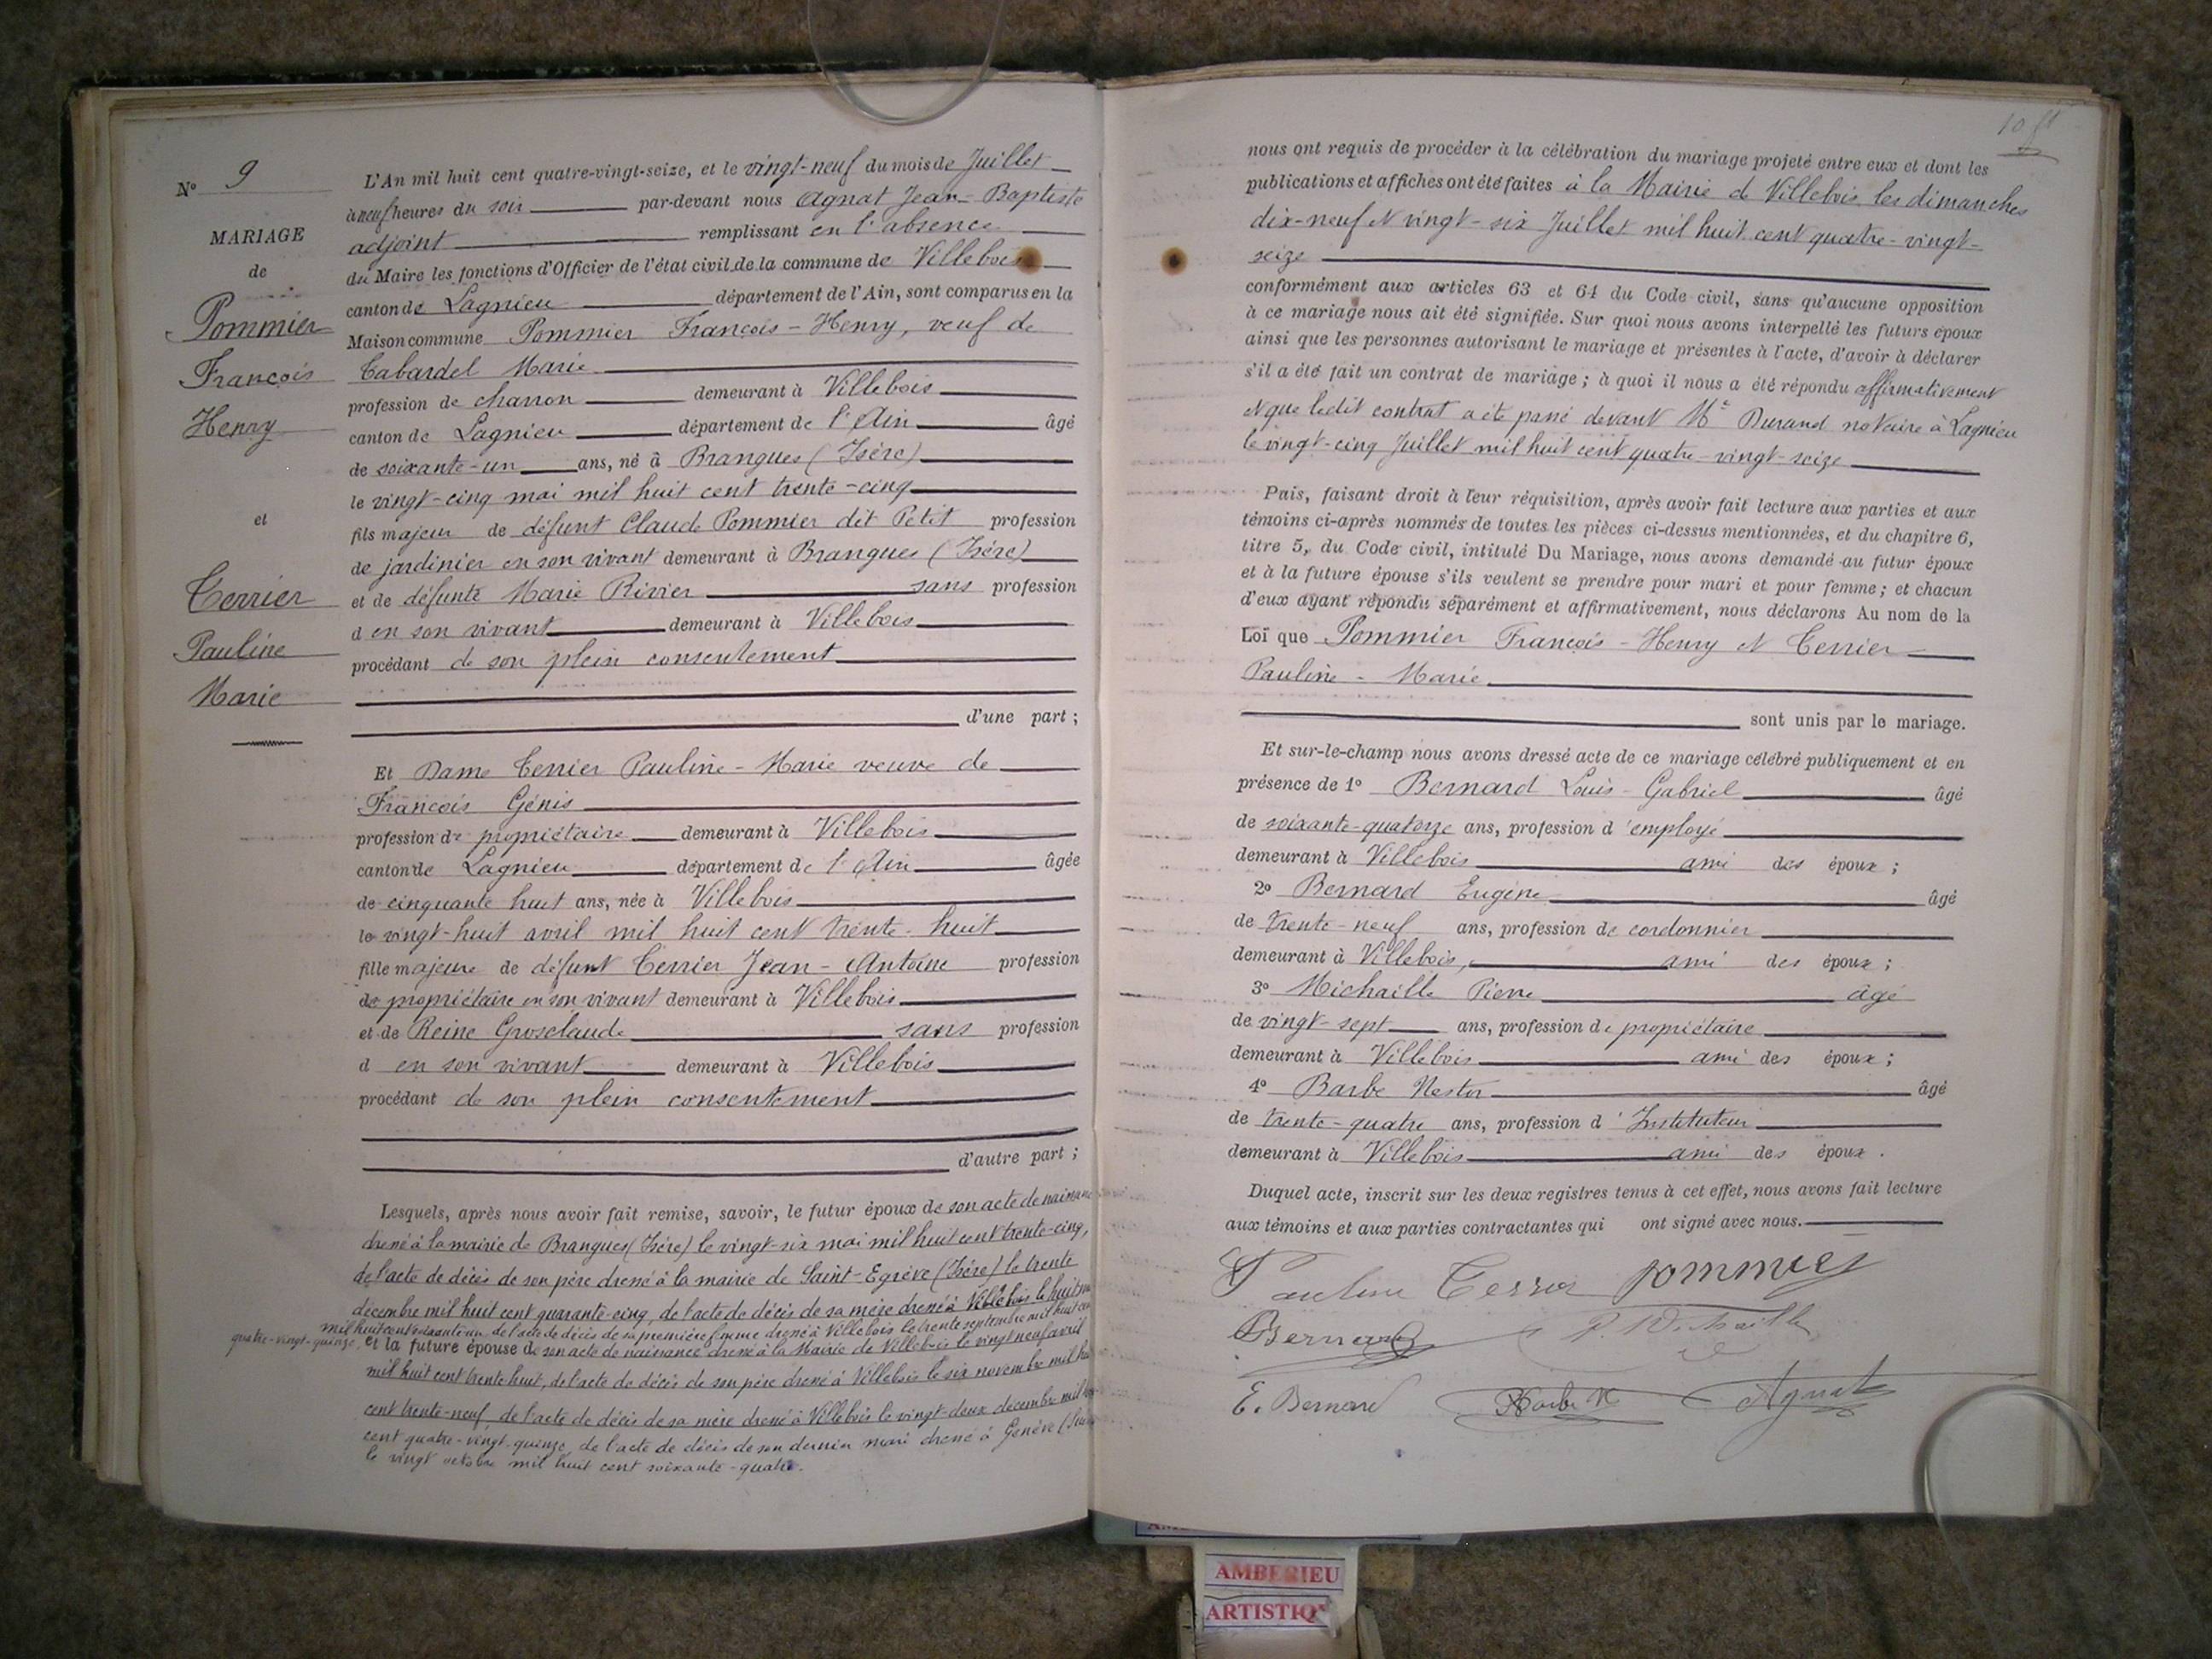 N° 9
MARIAGE
de
Pommier
François
Henry
et
Terrier
Pauline
Marie
L'An mil huit cent quatre-vingt-seize, et le vingt-neuf du mois de Juillet
à neuf heures du soir par-devant nous Agnat Jean-Baptiste
adjoint remplissant en l'absence
du Maire les fonctions d'Officier de l'état civil de la commune de Villebois
canton de Lagnieu département de l'Ain, sont comparus en la
Maison commune Pommier François-Henry, veuf de
Tabardel Marie
profession de charron demeurant à Villebois
canton de Lagnieu département de l'Ain âgé
de soixante-un ans, né à Brangues (Isère)
le vingt-cinq mai mil huit cent trente-cinq
fils majeur de défunt Claude Pommier dit Petit profession
de jardinier en son vivant demeurant à Brangues (Isère)
et de défunte Marie Rivier sans profession
d en son vivant demeurant à Villebois
procédant de son plein consentement
d'une part ;
Et Dame Terrier Pauline-Marie veuve de
François Génis
profession de propriétaire demeurant à Villebois
canton de Lagnieu département de l'Ain âgée
de cinquante huit ans, née à Villebois
le vingt-huit avril mil huit cent trente-huit
fille majeure de défunt Terrier Jean-Antoine profession
de propriétaire en son vivant demeurant à Villebois
et de Reine Grosclaude sans profession
d en son vivant demeurant à Villebois
procédant de son plein consentement
d'autre part ;
Lesquels, après nous avoir fait remise, savoir, le futur époux de son acte de naissance
dressé à la mairie de Brangues (Isère) le vingt-six mai mil huit cent trente-cinq,
de l'acte de décès de son père dressé à la mairie de Saint-Egrève (Isère) le trente
décembre mil huit cent quarante-cinq, de l'acte de décès de sa mère dressé à Villebois le huit
mil huit cent soixante-un de l'acte de décès de sa première femme dressé à Villebois le trente septembre mil huit cent
quatre-vingt-quinze, et la future épouse de son acte de naissance dressé à la Mairie de Villebois le vingt neuf avril
mil huit cent trente huit, de l'acte de décès de son père dressé à Villebois le six novembre mil huit
cent trente-neuf, de l'acte de décès de sa mère dressé à Villebois le vingt-deux décembre mil huit
cent quatre-vingt-quinze, de l'acte de décès de son dernier mari dressé à Genève (Suisse
le vingt octobre mil huit cent soixante-quatre.
10 ft
nous ont requis de procéder à la célébration du mariage projeté entre eux et dont les
publications et affiches ont été faites à la Mairie de Villebois les dimanches
dix-neuf et vingt-six Juillet mil huit cent quatre-vingt-
seize
conformément aux articles 63 et 64 du Code civil, sans qu'aucune opposition
à ce mariage nous ait été signifiée. Sur quoi nous avons interpellé les futurs époux
ainsi que les personnes autorisant le mariage et présentes à l'acte, d'avoir à déclarer
s'il a été fait un contrat de mariage ; à quoi il nous a été répondu affirmativement
et que ledit contrat a été passé devant Me Durand notaire à Lagnieu
le vingt-cinq Juillet mil huit cent quatre-vingt-seize
Puis, faisant droit à leur réquisition, après avoir fait lecture aux parties et aux
témoins ci-après nommés de toutes les pièces ci-dessus mentionnées, et du chapitre 6,
titre 5, du Code civil, intitulé Du Mariage, nous avons demandé au futur époux
et à la future épouse s'ils veulent se prendre pour mari et pour femme ; et chacun
d'eux ayant répondu séparément et affirmativement, nous déclarons Au nom de la
Loi que Pommier François-Henry et Terrier
Pauline-Marie
sont unis par le mariage.
Et sur-le-champ nous avons dressé acte de ce mariage célébré publiquement et en
présence de 1° Bernard Louis-Gabriel âgé
de soixante-quatorze ans, profession d'employé
demeurant à Villebois ami des époux ;
2° Bernard Eugène âgé
de trente-neuf ans, profession de cordonnier
demeurant à Villebois, ami des époux ;
3° Michaille Pierre âgé
de vingt-sept ans, profession de propriétaire
demeurant à Villebois ami des époux ;
4° Barbe Nestor âgé
de trente-quatre ans, profession d'Instituteur
demeurant à Villebois ami des époux.
Duquel acte, inscrit sur les deux registres tenus à cet effet, nous avons fait lecture
aux témoins et aux parties contractantes qui ont signé avec nous.
Pauline Terrier pommier
Bernard P. Michaille
E. Bernard Barbe N Agnat
AMBERIEU
ARTISTIQ